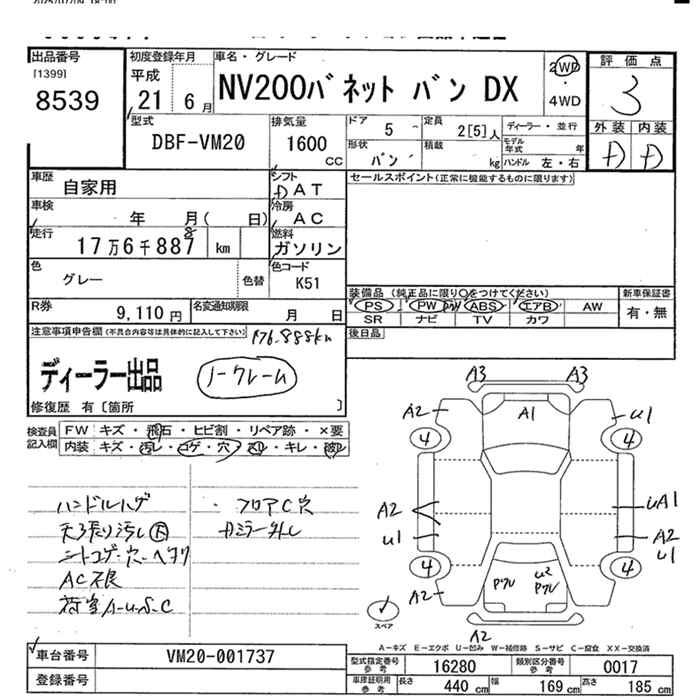 2025/07/09 18:00
出品番号
[1399]
8539
初度登録年月
平成
21年 6月
車名・グレード
NV200バネット バン DX
2WD
・
4WD
評価点
3
外装 内装
D D
型式
DBF-VM20
排気量
1600
CC
ドア 5
形状 バン
定員 2[5]人
積載 kg
ディーラー・並行
モデル年式 年
ハンドル 左・右
車歴
自家用
シフト
DAT
車検
年 月( 日)
冷房
AC
走行
17万6千887 km
8
燃料
ガソリン
色
グレー
色替
色コード
K51
R券
9,110円
名変通知期限
月 日
セールスポイント(正常に機能するものに限ります)
装備品 (純正品に限り○をつけてください)
PS PW ABS エアB AW
SR ナビ TV カワ
新車保証書
有・無
後日品
注意事項申告欄(不具合内容等は具体的に記入して下さい)
176,888km
ディーラー出品
ノークレーム
修復歴 有〔箇所 〕
検査員記入欄
FW キズ・飛石・ヒビ割・リペア跡・×要
内装 キズ・汚レ・コゲ・穴・スレ・キレ・破レ
ハンドルハゲ
天張り汚レ大
シートコゲ・穴・ヘタリ
AC不良
荷室A-U-S-C
・フロアC穴
・カミラー外し
A3 A3
A2 A1 U1
4 4
A2 UA1
U1 A2
U1
4 4
A2 ワレ U2
ワレ
A2
スペア
A-キズ E-エクボ U-凹み W-補修跡 S-サビ C-腐食 XX-交換済
車台番号 VM20-001737
登録番号
型式指定番号 参考 16280
類別区分番号 参考 0017
車庫証明用 参考 長さ 440 cm 幅 169 cm 高さ 185 cm